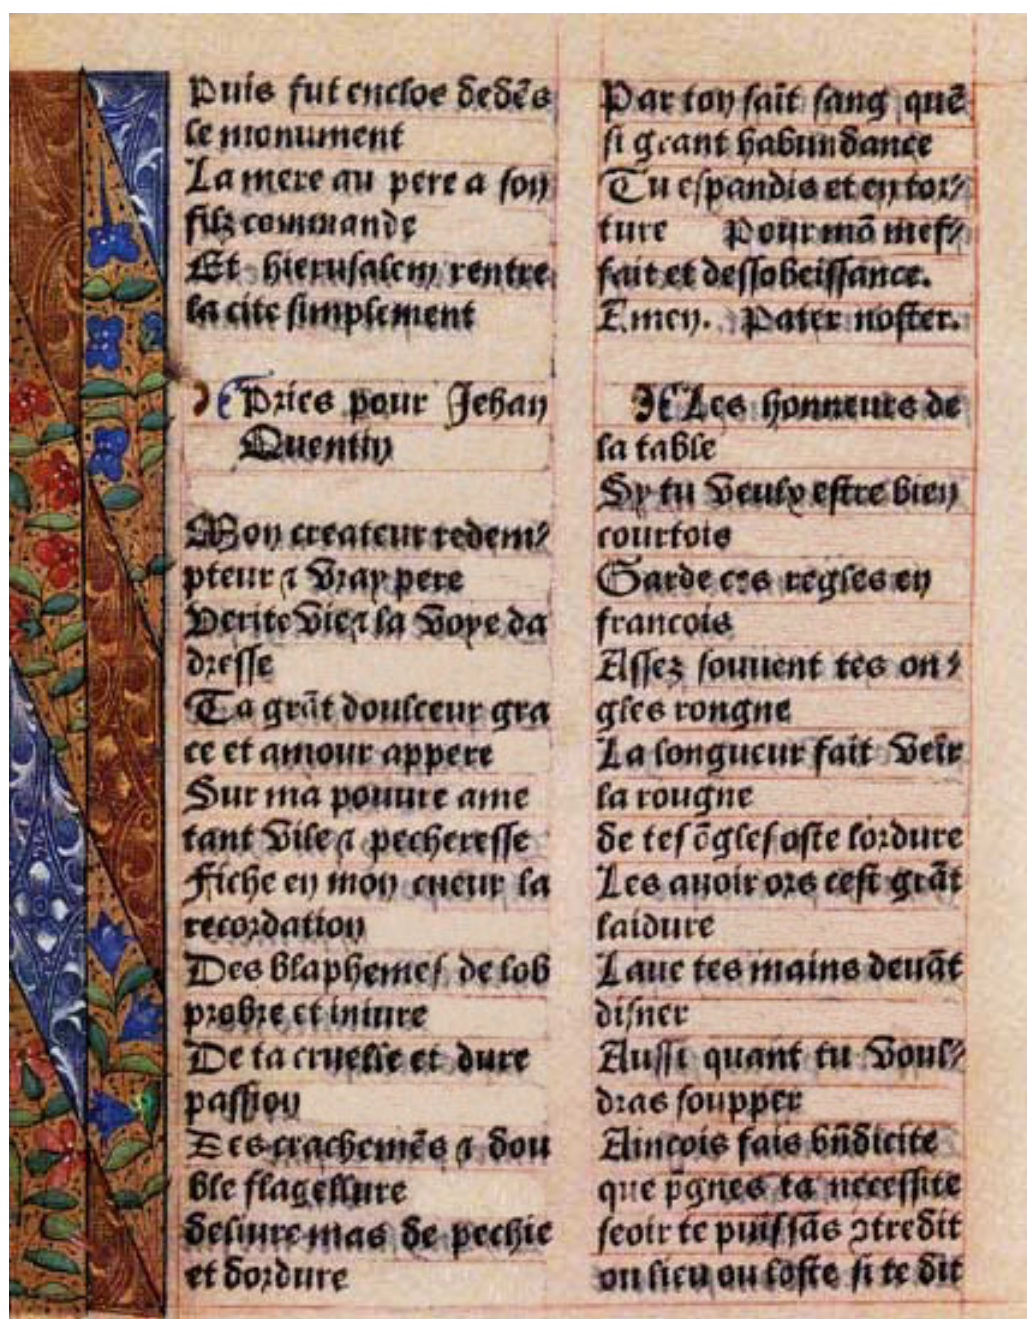 Puis fut encloe dedẽs
le monument
La mere au pere a son
filz commande
Et hierusalem rentre
la cite simplement
Pries pour Jehan
Quentin
Mon createur redem⸗
pteur ⁊ vray pere
Verite vie ⁊ la voye da
dresse
Ta grãt doulceur gra
ce et amour appere
Sur ma pouure ame
tant vile ⁊ pecheresse
Fiche en mon cueur la
recordation
Des blaphemes de lob
probre et iniure
De ta cruelle et dure
passion
Des crachemẽs ⁊ dou
ble flagellure
desiure mas de pechie
et dordure
Par toy sait sang quẽ
si grant habundance
Tu espandis et en tor⸗
ture Pour mõ mef⸗
fait et dessobeissance.
Amen. Pater noster.
Les honneurs de
la table
Sy tu veulx estre bien
courtois
Garde ces regles en
francois
Assez souuent tes on⸗
gles rongne
La longueur fait veir
la rougne
de tes õgles oste lordure
Les auoir ors cest grãt
laidure
Laue tes mains deuãt
disner
Aussi quant tu voul⸗
dras soupper
Aincois fais bñdicite
que p̃gnes ta necessite
seoir te puis sãs ꝯtredit
on lieu ou loste si te dit